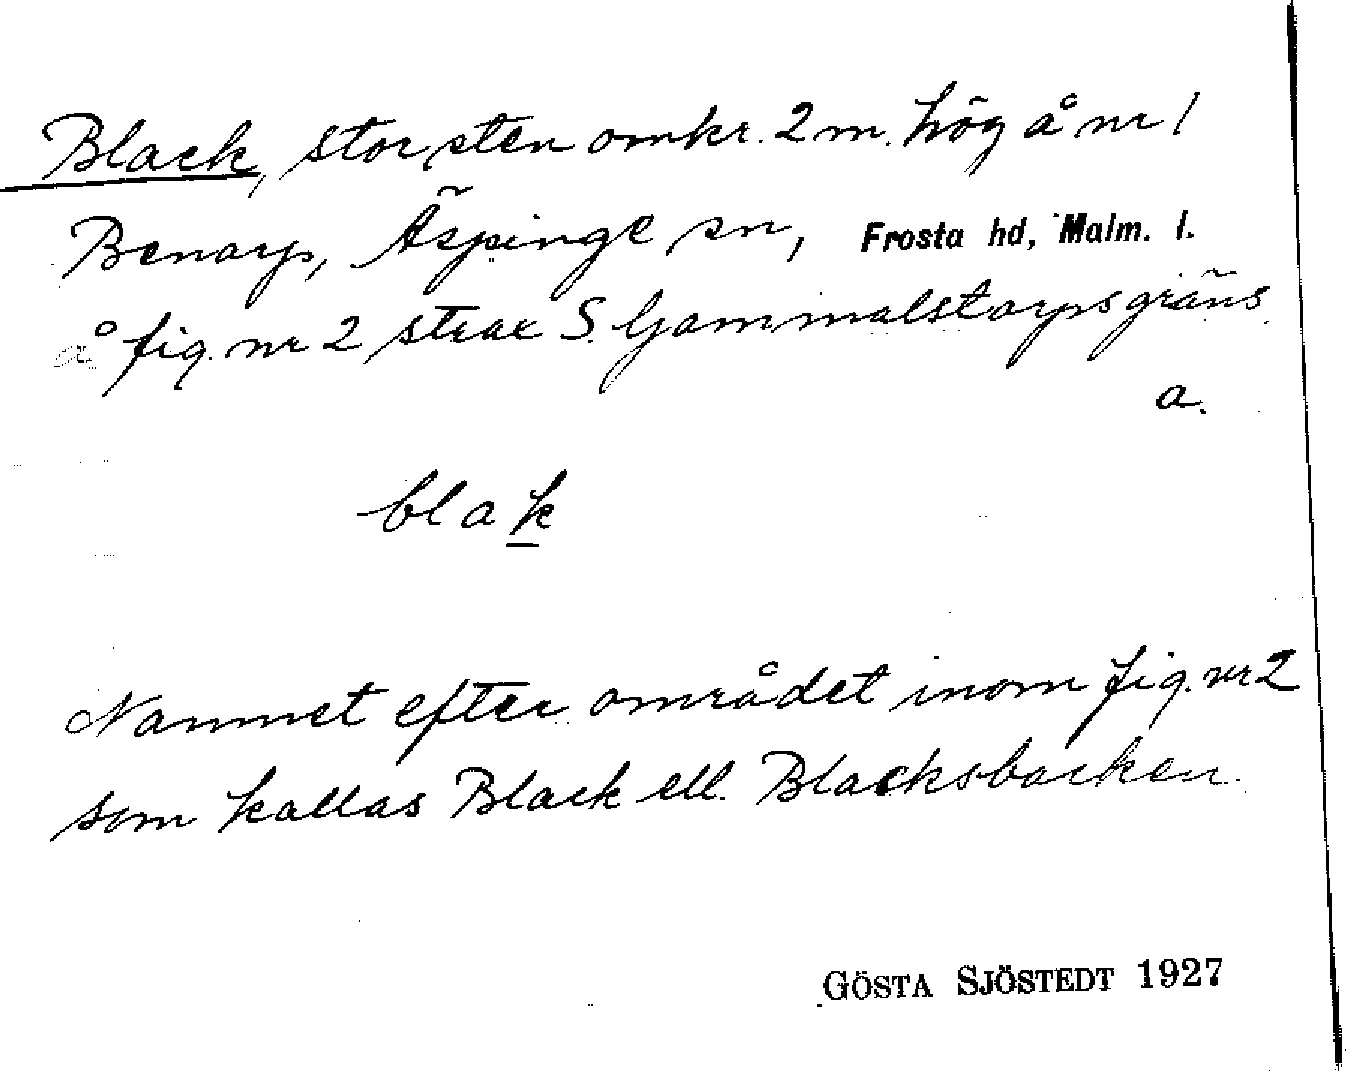 Black, stor sten omkr. 2 m. hög å nr 1
Benarp, Äspinge sn, Frosta hd, Malm. l.
å fig. nr 2 strax S. Gammalstorps gräns.
a.
blak
Namnet efter området inom fig. nr 2
som kallas Black ell. Blacksbacken.
GÖSTA SJÖSTEDT 1927